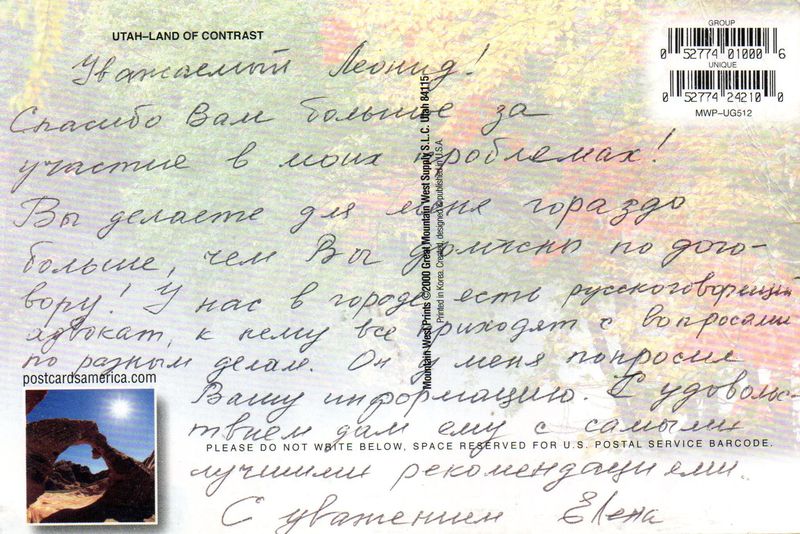 UTAH–LAND OF CONTRAST
GROUP
0 52774 01000 6
UNIQUE
0 52774 24210 0
MWP–UG512
Уважаемый Леонид!
Спасибо Вам большое за
участие в моих проблемах!
Вы делаете для меня гораздо
больше, чем Вы должны по дого-
вору! У нас в городе есть русскоговорящий
адвокат, к нему все приходят с вопросами
по разным делам. Он у меня попросил
Вашу информацию. С удоволь-
ствием дам ему с самыми
лучшими рекомендациями.
С уважением Елена
Mountain West Prints ©2000 Great Mountain West Supply S.L.C. Utah 84115
Printed in Korea. Created, designed & published in U.S.A.
postcardsamerica.com
PLEASE DO NOT WRITE BELOW, SPACE RESERVED FOR U.S. POSTAL SERVICE BARCODE.